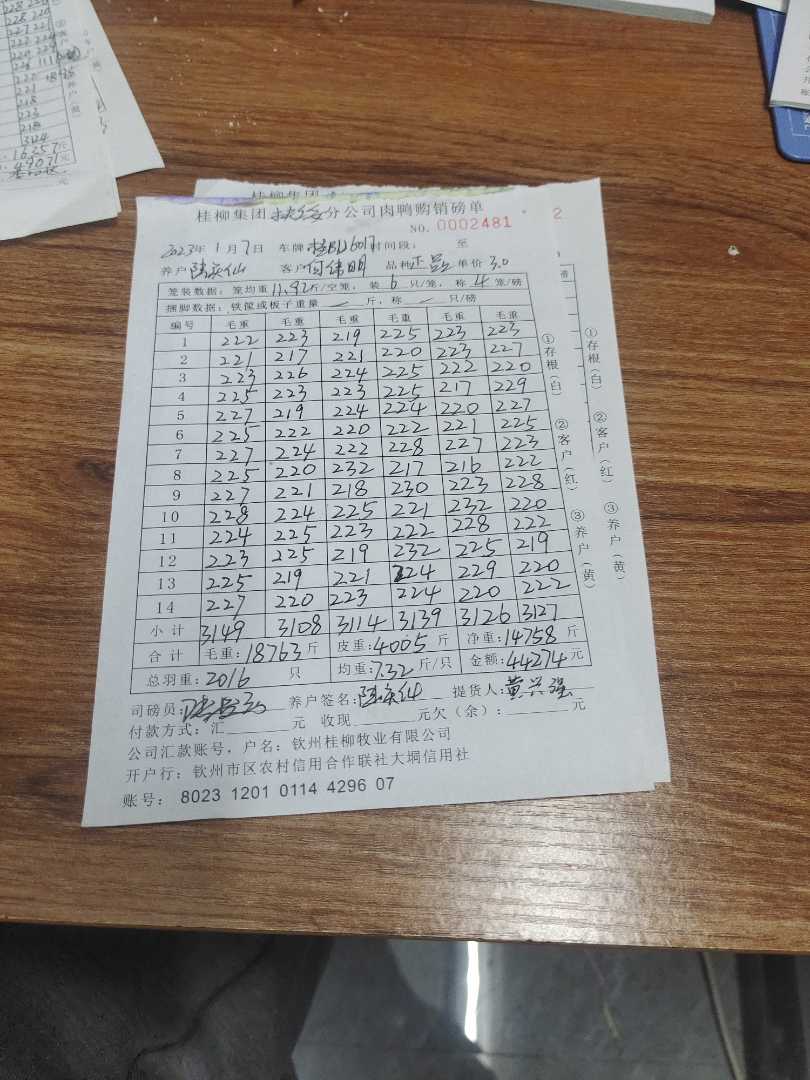 228 221
227 221
222 224
220 224
221
218
223
218
3124
16357斤
49071元
桂柳集团
桂柳集团 分公司肉鸭购销磅单
NO. 0002481
2
2023年1月7日 车牌 时间段： 至
养户 客户何伟明 品种正品 单价3.0
笼装数据：笼均重11.92斤/空笼，装6只/笼，称4笼/磅
捆脚数据：铁筐或板子重量 斤，称 只/磅
编号 毛重 毛重 毛重 毛重 毛重 毛重
1 222 223 219 225 223 223
2 221 217 221 220 223 227
3 223 226 224 225 222 220
4 225 223 223 225 217 229
5 227 219 224 224 220 227
6 225 222 220 222 221 225
7 227 224 222 228 227 223
8 225 220 232 217 216 222
9 227 221 218 230 223 228
10 228 224 225 221 232 220
11 224 225 223 222 228 222
12 223 225 219 232 225 219
13 225 219 221 224 229 220
14 227 220 223 224 220 222
小计 3149 3108 3114 3139 3126 3127
合计 毛重：18763斤 皮重：4005斤 净重：14758斤
总羽重：2016 只 均重：7.32斤/只 金额：44274元
司磅员： 养户签名： 提货人：黄兴强
付款方式：汇 元 收现 元欠（余）： 元
公司汇款账号，户名：钦州桂柳牧业有限公司
开户行：钦州市区农村信用合作联社大垌信用社
账号：8023 1201 0114 4296 07
①存根（白） ②客户（红） ③养户（黄）
①存根（白） ②客户（红） ③养户（黄）